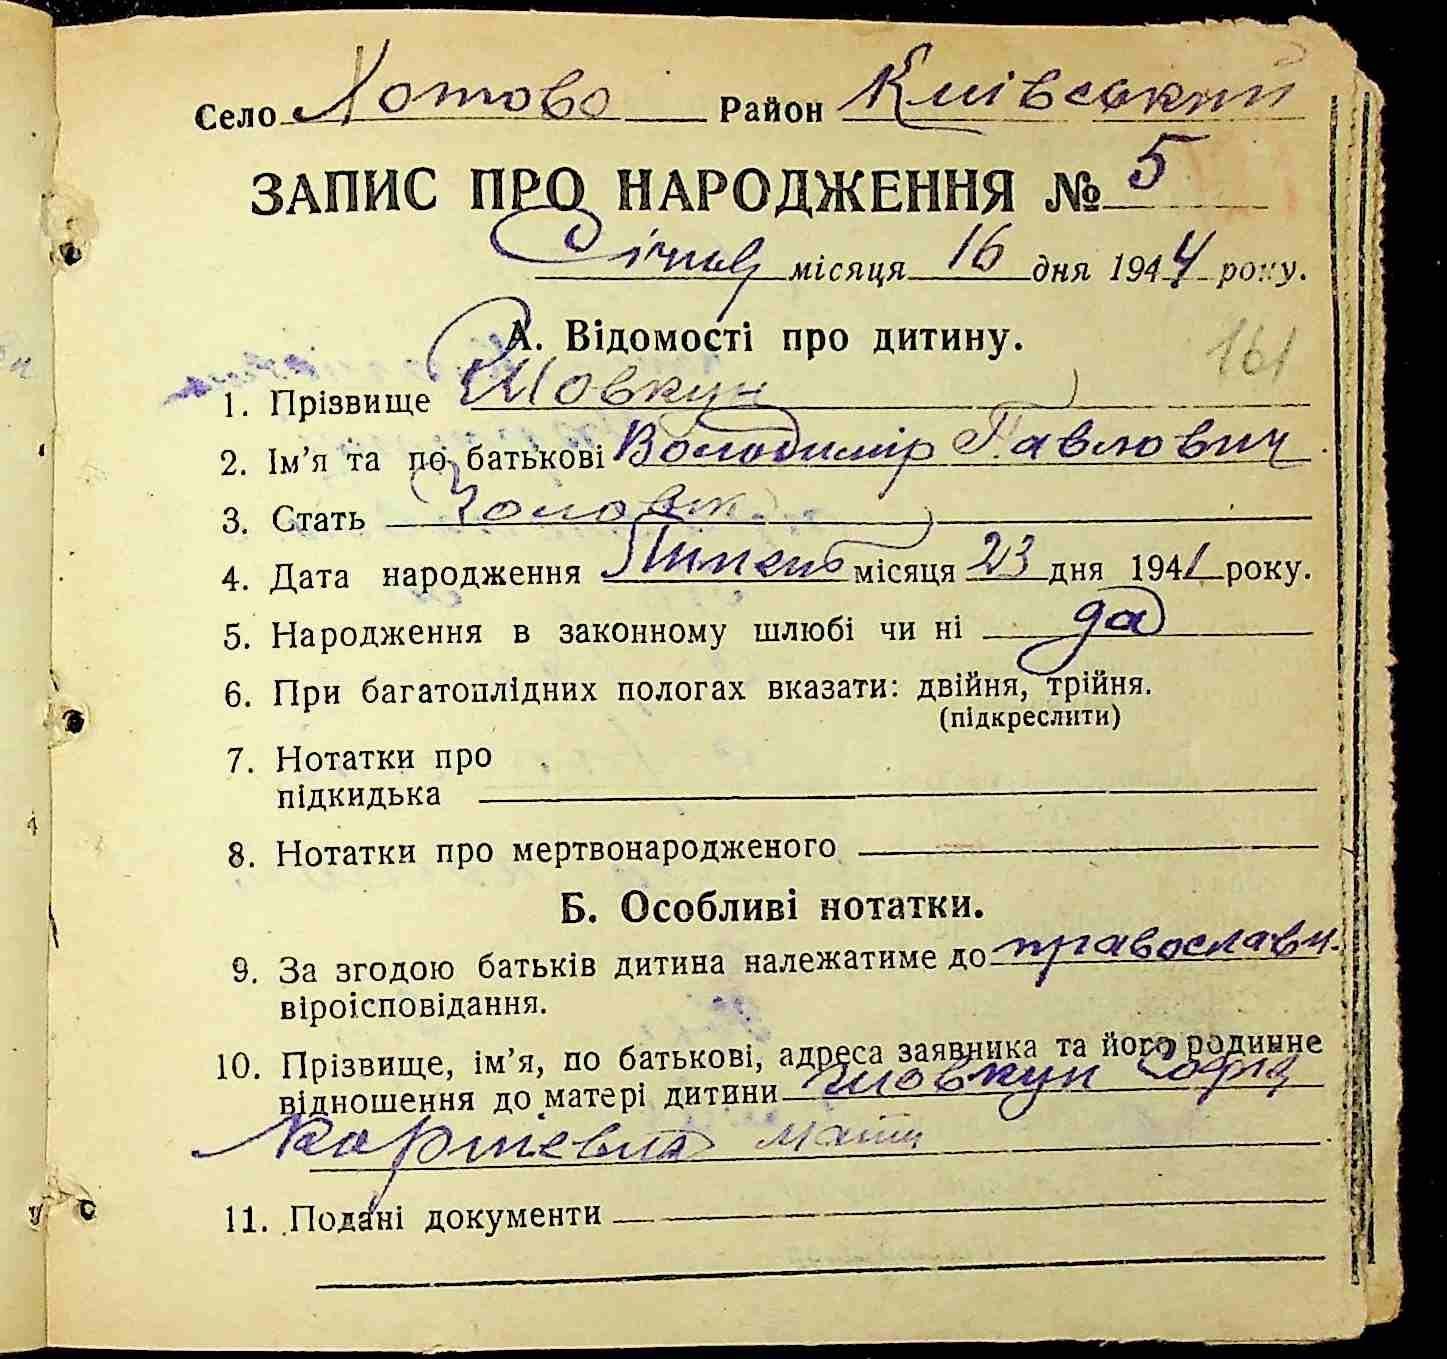 Село Хотово Район Київський
ЗАПИС ПРО НАРОДЖЕННЯ № 5
Січня місяця 16 дня 1944 року.
А. Відомості про дитину.
161
1. Прізвище Шовкун
2. Ім'я та по батькові Володимір Павлович
3. Стать Золовж.
4. Дата народження Липень місяця 23 дня 1941 року.
5. Народження в законному шлюбі чи ні да
6. При багатоплідних пологах вказати: двійня, трійня.
(підкреслити)
7. Нотатки про
підкидька
8. Нотатки про мертвонародженого
Б. Особливі нотатки.
9. За згодою батьків дитина належатиме до православн.
віроісповідання.
10. Прізвище, ім'я, по батькові, адреса заявника та його родинне
відношення до матері дитини Шовкун Софія
мати
11. Подані документи